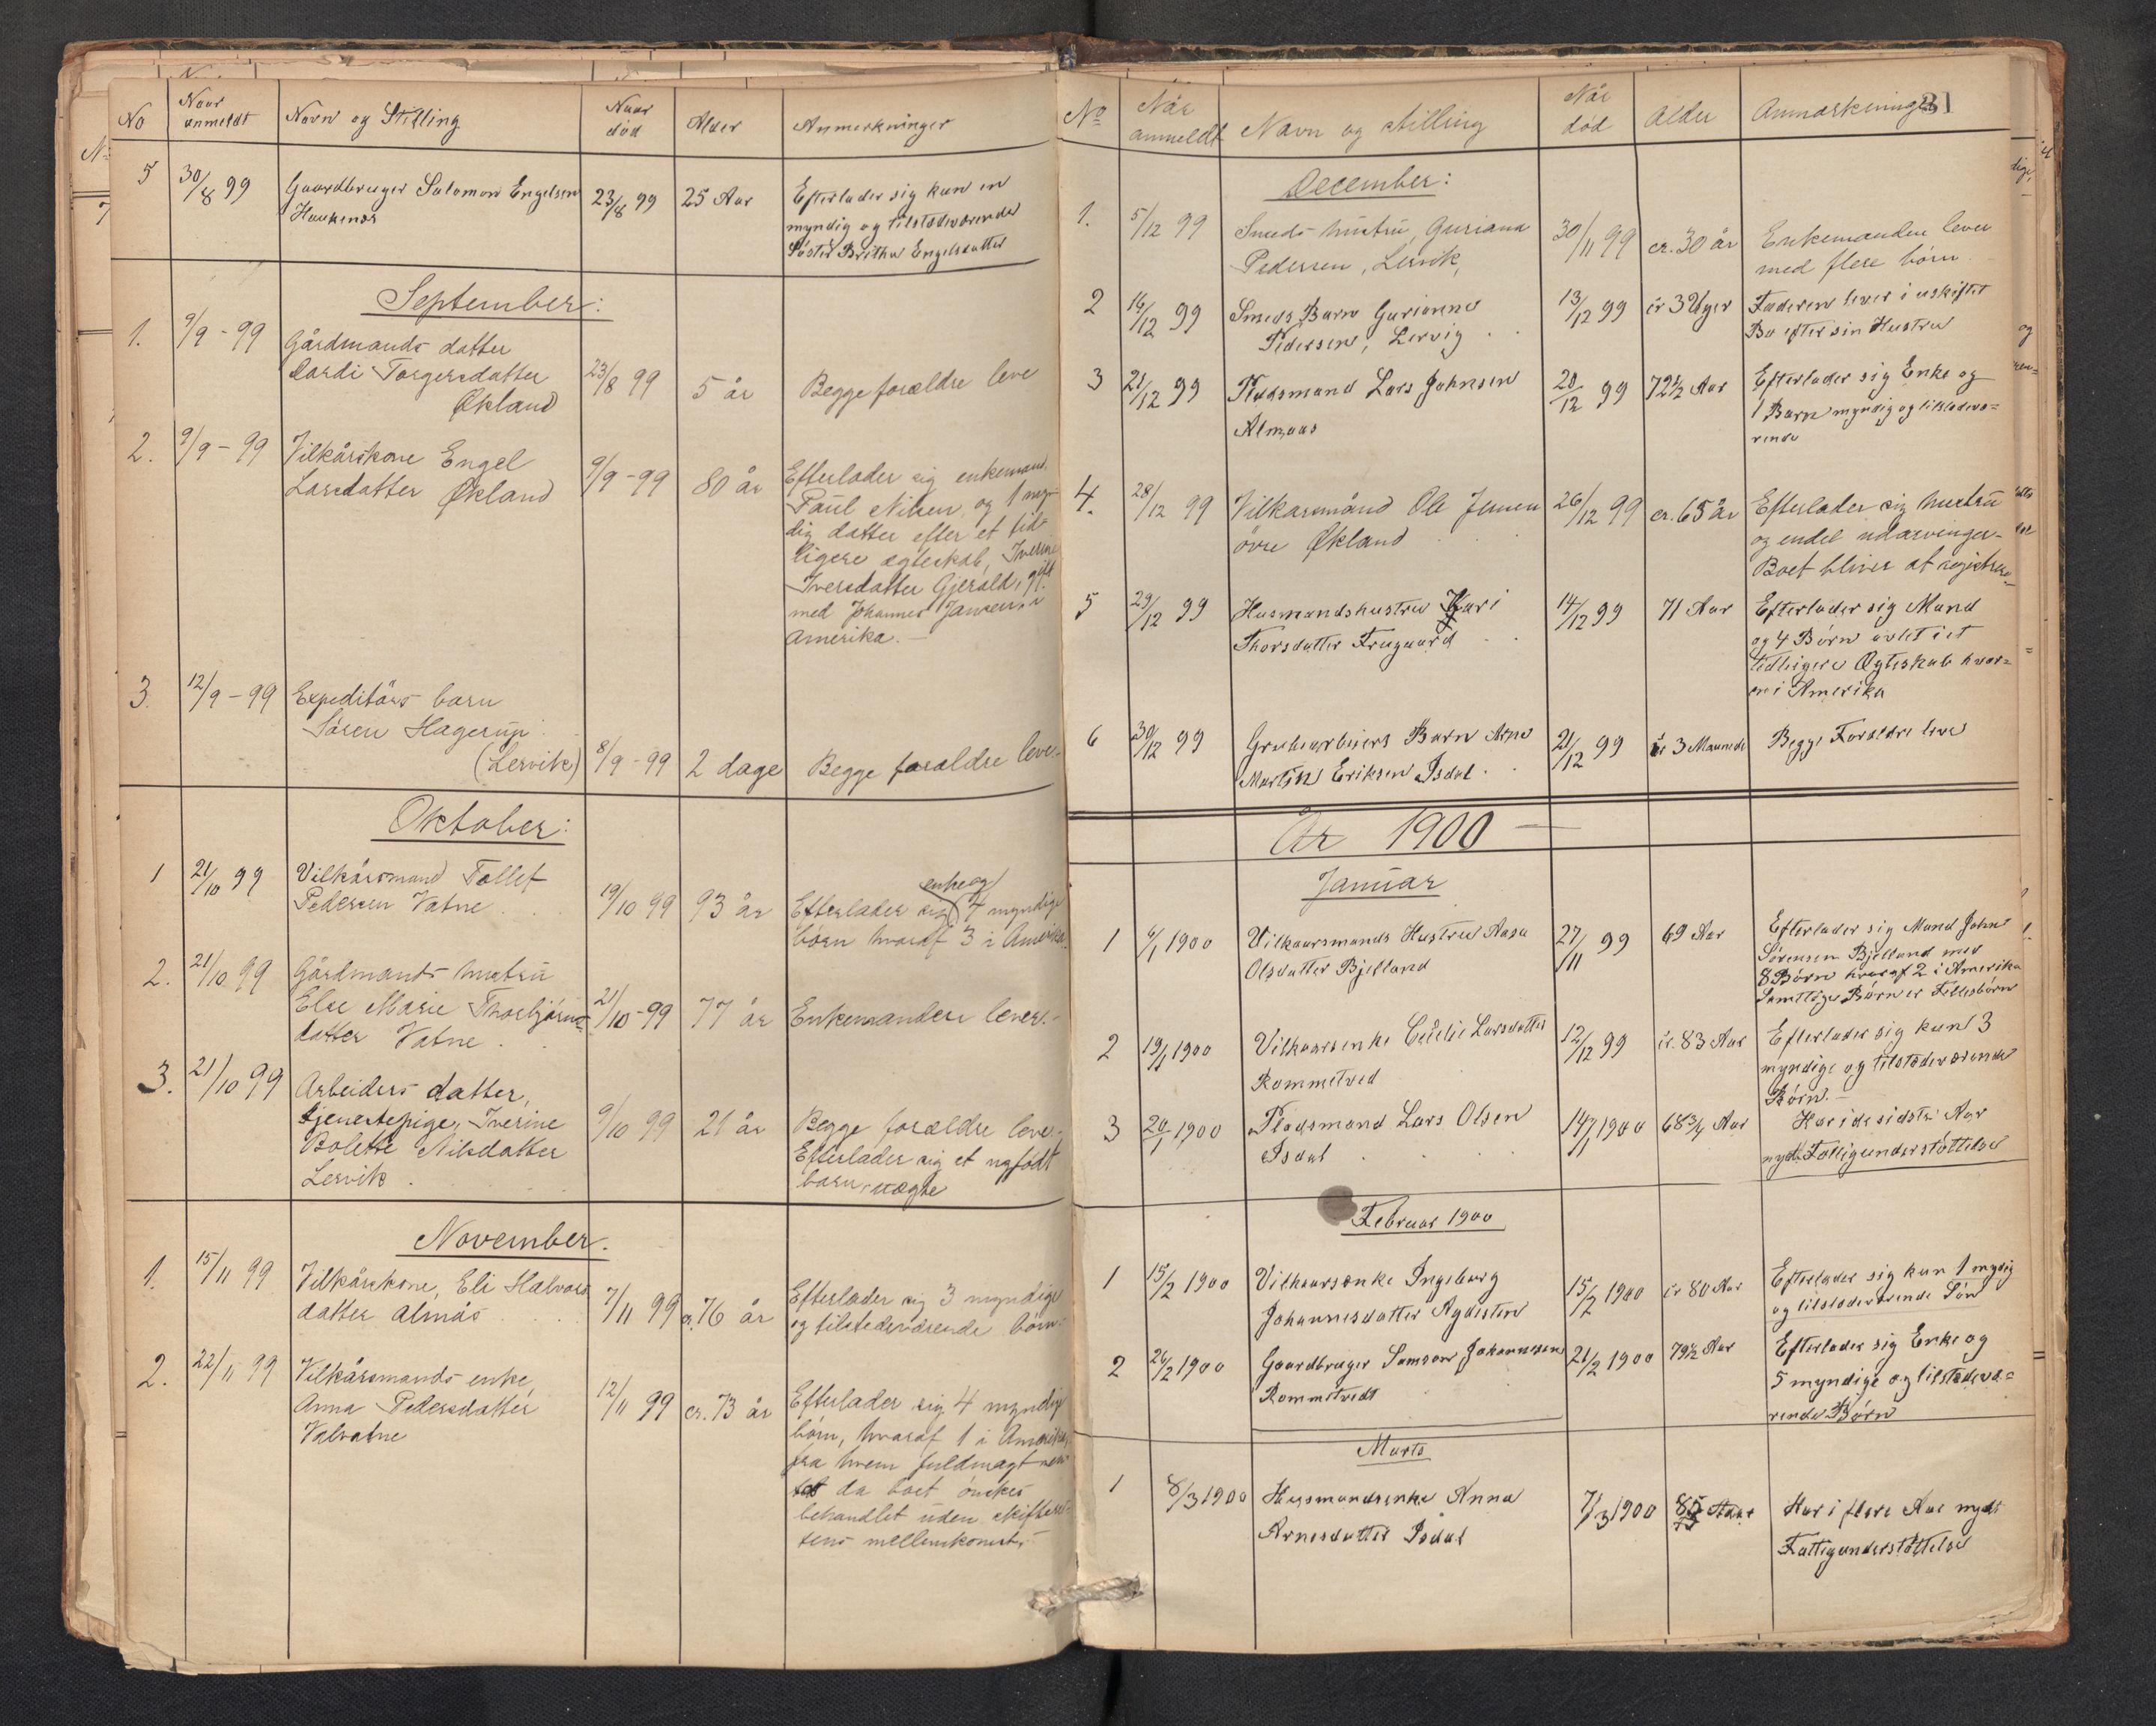 No
Naar anmeldt
Navn og Stilling
Naar død
Alder
Anmerkninger
5
30/8 99
Gaardbruger Salomon Engelsen
Haukenæs
23/8 99
25 Aar
Efterlader sig kun en
myndig og tilstedeværende
Søster Britha Engelsdatter
September:
1.
9/9 - 99
Gårdmands datter
Dordi Torgersdatter
Økland
23/8 99
5 år
Begge forældre leve
2.
9/9 - 99
Vilkårskone Engel
Larsdatter Økland
9/9 - 99
80 år
Efterlader sig enkemand
Paul Nilsen, og 1 myn-
dig datter efter et tid-
ligere ægteskab, Iverine
Iversdatter Gjerald, gift
med Johannes Jansen, i
Amerika. —
3.
12/9 - 99
Expeditørs barn
Søren Hagerup
(Lervik)
8/9 - 99
2 dage
Begge forældre leve.-
Oktober:
1
21/10 99
Vilkårsmand Tollef
Pedersen Vatne
19/10 99
93 år
enke og
Efterlader sig 4 myndige
børn hvoraf 3 i Amerika.
2.
21/10 99
Gårdmands hustru
Else Marie Thorbjørns-
datter Vatne .
21/10 - 99
77 år
Enkemanden lever.-
3.
21/10 99
Arbeiders datter,
tjenestepige, Iverine
Bolette Nilsdatter
Lervik .
9/10 99
21 år
Begge forældre leve.-
Efterlader sig et nyfødt
barn, uægte
November.
1.
15/11 99
Vilkårskone, Eli Halvors
datter Almås
7/11 99
cr. 76 år
Efterlader sig 3 myndige
og tilstedeværende børn.-
2.
22/11 99
Vilkårsmands enke,
Anna Pedersdatter
Valvatne
12/11 99
cr. 73 år
Efterlader sig 4 myndige
børn, hvoraf 1 i Amerika,
fra hvem fuldmagt
da boet ønskes
behandlet uden skifteret-
tens mellemkomst.-
31
No
Når anmeldt
Navn og stilling
Når død
Alder
Anmærkninger
December:
1.
5/12 99
Smeds hustru, Guriana
Pedersen, Lervik,
30/11 99
cr. 30 år
Enkemanden lever
med flere børn
2
16/12 99
Smeds Barn Gurianne
Pedersen, Lervig
13/12 99
cir 3 Uger
Faderen lever i uskiftet
Bo efter sin Hustru
3
21/12 99
Pladsmand Lars Johnsen
Almaas
20/12 99
72½ Aar
Efterlader sig Enke og
1 Barn myndig og tilstedevæ=
rende
4.
28/12 99
Vilkårsmand Ole Jensen
øvre Økland
26/12 99
cr. 65 år
Efterlader sig hustru
og endel udarvinger.-
Boet bliver at registrere.-
5
29/12 99
Husmandshustru Kari
Thorsdatter Frugaard
14/12 99
71 Aar
Efterlader sig Mand
og 4 Børn avlet i et
tidligere Ægteskab hvor=
en i Amerika
6
30/12 99
Grubearbeiers Barn Arne
Martin Eriksen Isdal .
21/12 99
3 Maaneder
Begge Forældre leve
År 1900 —
Januar
1
6/1 1900
Vilkaarsmands Hustru Aasa
Olsdatter Bjelland
27/11 99
69 Aar
Efterlader sig Mand John
Sørensen Bjelland med
8 Børn hvoraf 2 i Amerika
Samtlige Børn er Fællesbørn
2
19/1 1900
Vilkaarsenke Cecilie Larsdatter
Rommetved
12/12 99
cir. 83 Aar
Efterlader sig kun 3
myndige og tilstedeværende
Børn.-
3
20/1 1900
Pladsmand Lars Olsen
Isdal
14/1 1900
68¾ Aar
Har i de sidste Aar
nydt Fattigunderstøttelse
Februar 1900
1
15/2 1900
Vilkaarsenke Ingeborg
Johannesdatter Agdesten
15/2 1900
cir 80 Aar
Efterlader sig kun 1 mydig
og tilstedeværende Søn
2
26/2 1900
Gaardbruger Samson Johannesen
Rommetvedt
21/2 1900
79½ Aar
Efterlader sig Enke og
5 myndige og tilstedevæ=
rende Børn
Marts
1
8/3 1900
Husmandsenke Anna
Arnesdatter Isdal
7/3 1900
85 Aar
Har i flere Aar nydt
Fattigunderstøttelse